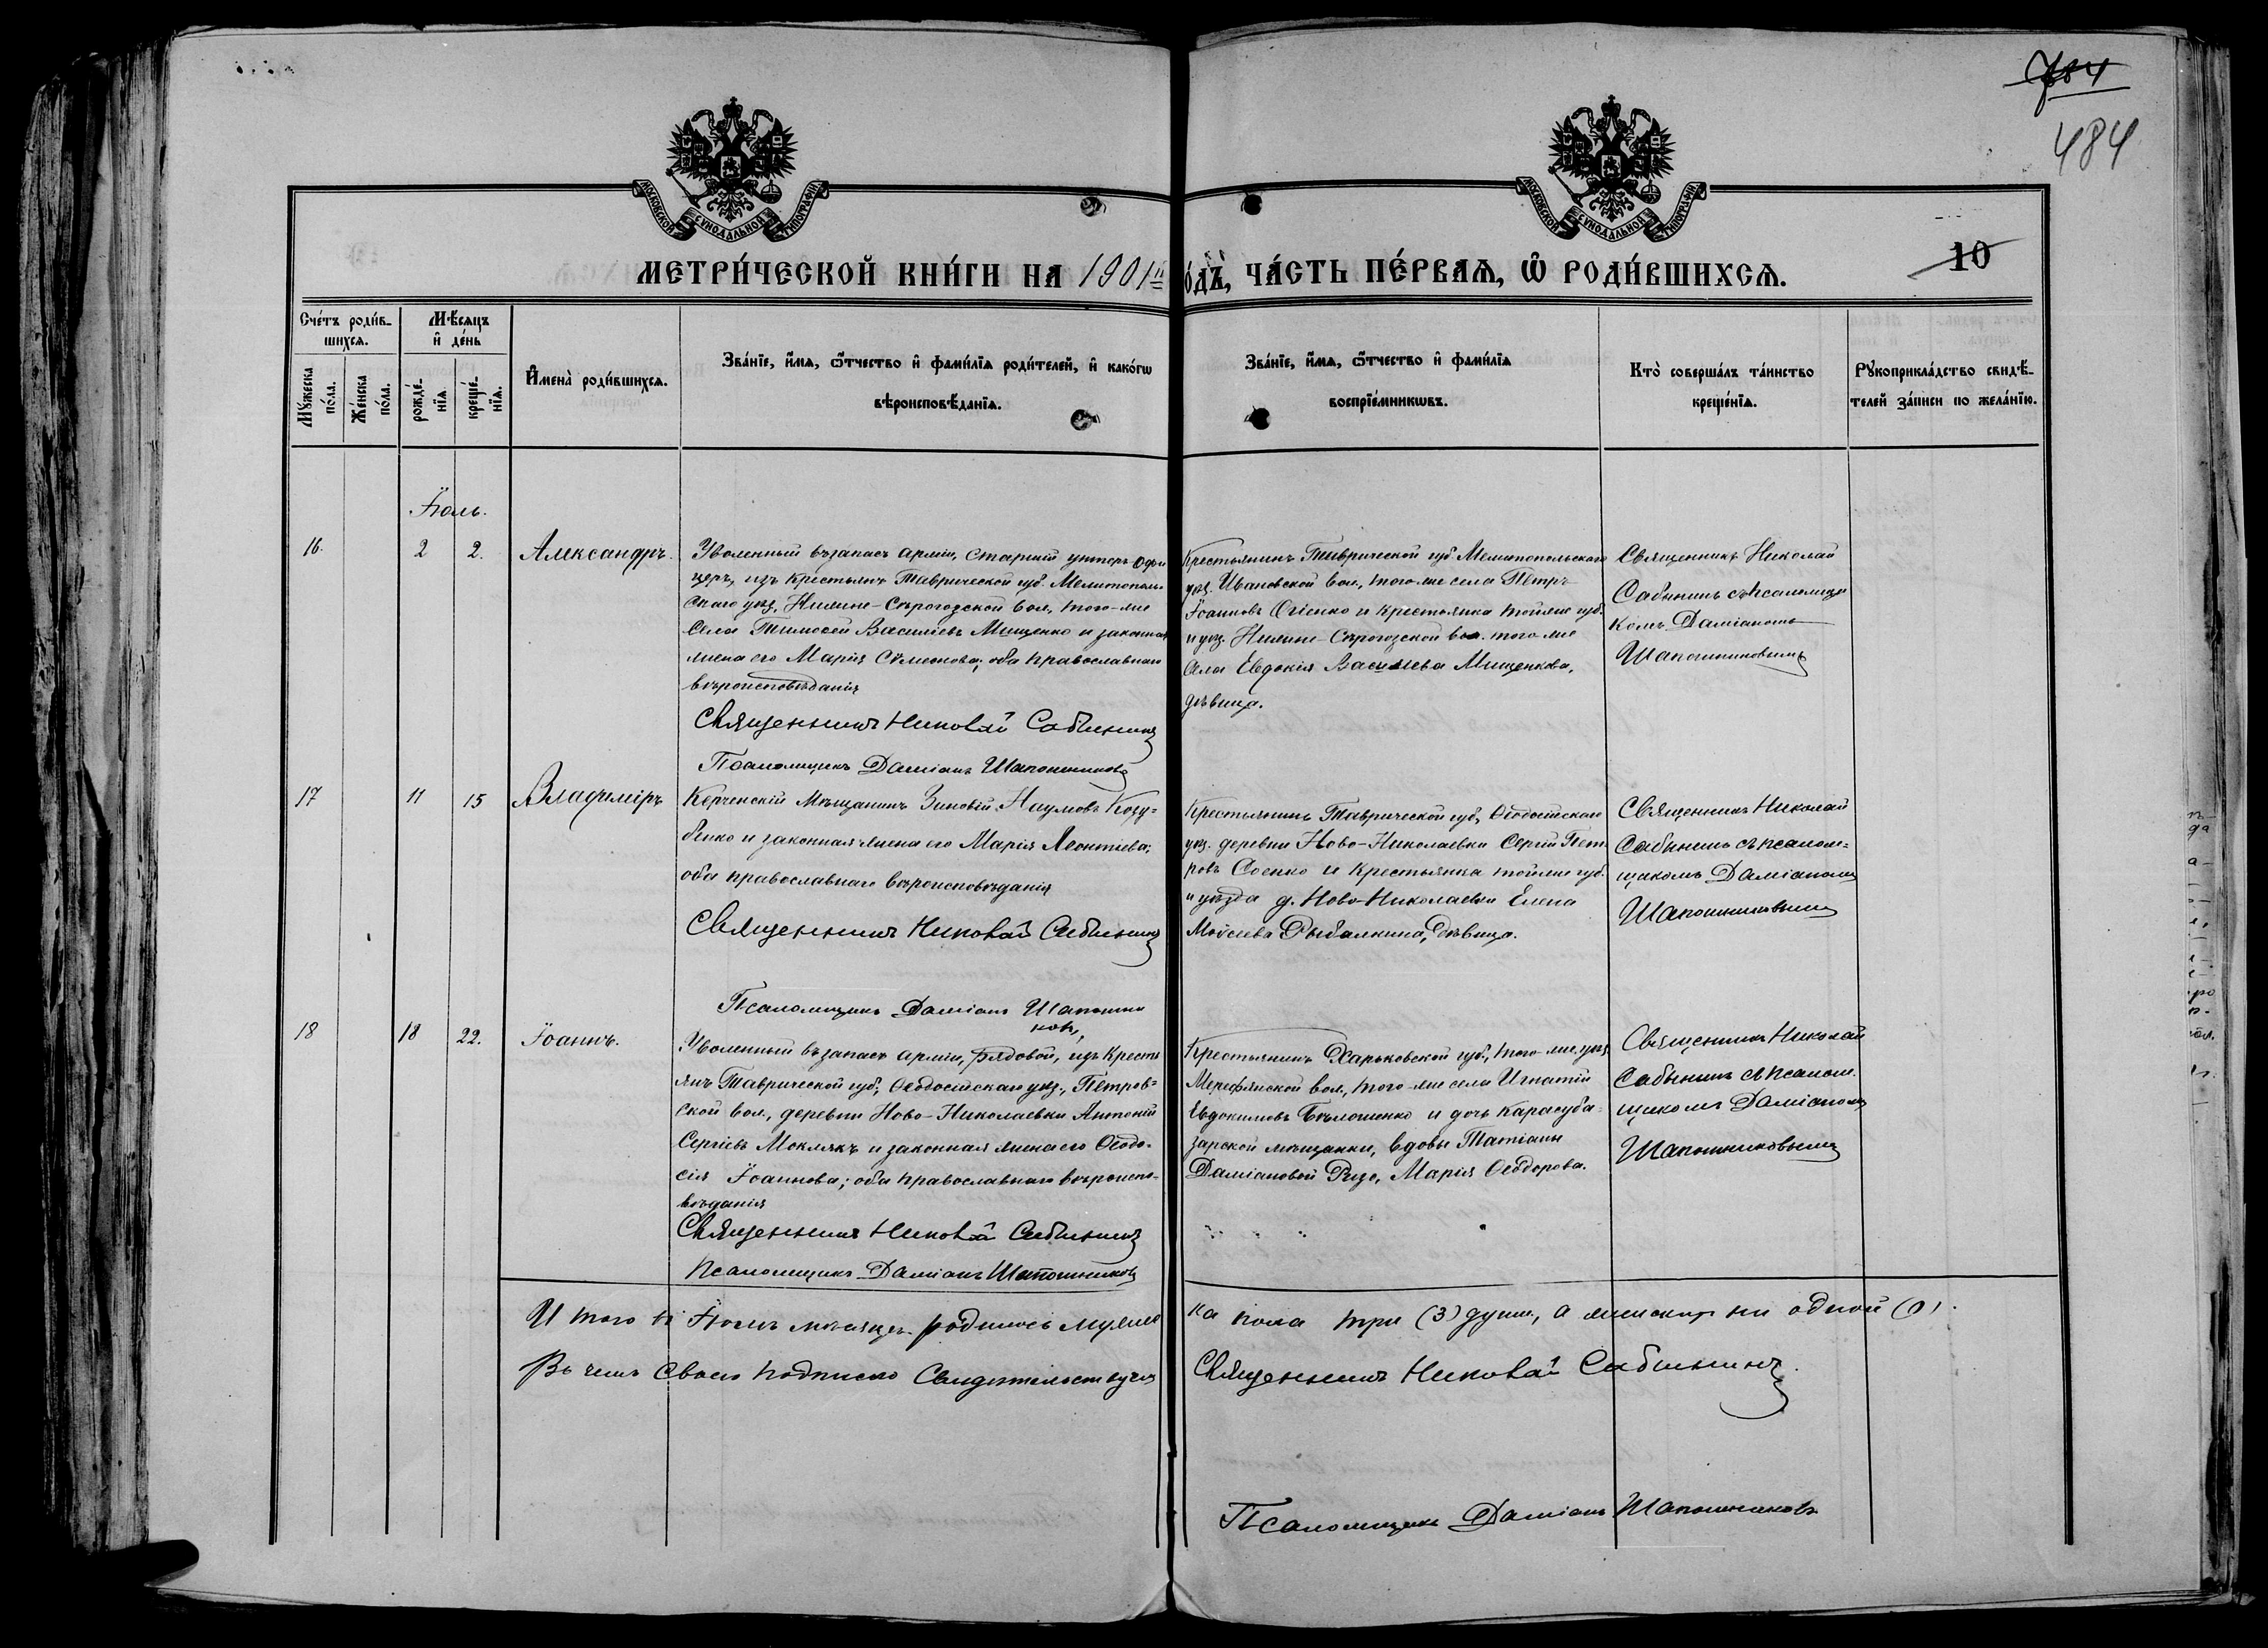 784
484
МОСКОВСКОЙ СѴНОДАЛЬНОЙ ТИПОГРАФІИ
МОСКОВСКОЙ СѴНОДАЛЬНОЙ ТИПОГРАФІИ
МЕТРИ́ЧЕСКОЙ КНИ́ГИ НА 1901й
о́дъ, ЧА́СТЬ ПЕ́РВАѦ, Ѡ РОДИ́ВШИХСѦ.
10
Сче́тъ роди́в-
шихсѧ.
Мꙋ́жеска по́ла.
Же́нска по́ла.
Мѣ́сѧцъ
и҆ де́нь
рожде́-
нїѧ.
креще́-
нїѧ.
И҆мена̀ роди́вшихсѧ.
Зва́нїе, и҆́мѧ, ѻ҆́тчество и҆ фами́лїѧ роди́телей, и҆ како́гѡ
вѣроисповѣ́данїѧ.
Зва́нїе, и҆́мѧ, ѻ҆́тчество и҆ фами́лїѧ
воспрїе́мникѡвъ.
Кто̀ соверша́лъ та́инство
креще́нїѧ.
Рꙋкоприкла́дство свидѣ́-
телей за́писи по жела́нїю.
Іюль.
16.
2
2.
Александръ.
Уволенный въ запасъ арміи, старшій унтеръ офи
церъ, изъ крестьянъ Таврической губ. Мелитополь-
скаго уѣз., Нижне-Сѣрогозской вол., того-же
села Тимоѳей Василіевъ Мищенко и законная
жена его Марія Сѵмеонова; оба православнаго
вѣроисповѣданія
Священникъ Николай Сабининъ
Псаломщикъ Даміанъ Шапошниковъ
Крестьянинъ Таврической губ. Мелитопольскаго
уѣз. Ивановской вол., того-же села Петръ
Іоанновъ Огіенко и крестьянка той-же губ.
и уѣз. Нижне-Сѣрогозской вол. того-же
села Евдокія Василіева Мищенкова,
дѣвица.
Священникъ Николай
Сабининъ съ псаломщи
комъ Даміаномъ
Шапошниковымъ
17
11
15
Владиміръ
Керченскій мѣщанинъ Зиновій Наумовъ Козу-
бенко и законная жена его Марія Леонтіева;
оба православнаго вѣроисповѣданія
Священникъ Николай Сабининъ
Псаломщикъ Даміанъ Шапошни
ковъ
Крестьянинъ Таврической губ., Ѳеодосійскаго
уѣз. деревни Ново-Николаевки Сергій Пет
ровъ Соенко и крестьянка той-же губ.
и уѣзда д. Ново-Николаевки Елена
Моѵсеева Рыбалкина, дѣвица.
Священникъ Николай
Сабининъ съ псалом-
щикомъ Даміаномъ
Шапошниковымъ
18
18
22.
Іоаннъ.
Уволенный въ запасъ арміи, рядовой, изъ кресть
янъ Таврической губ., Ѳеодосійскаго уѣз., Петров-
ской вол., деревни Ново-Николаевки Антоній
Сергіевъ Моклякъ и законная жена его Ѳеодо-
сія Іоаннова; оба православнаго вѣроиспо-
вѣданія
Священникъ Николай Сабининъ
Псаломщикъ Даміанъ Шапошниковъ
Крестьянинъ Харьковской губ., того-же уѣз.
Мерефянской вол., того-же села Игнатій
Евдокимовъ Бѣлошенко и дочь Карасуба-
зарской мѣщанки, вдовы Татіаны
Даміановой Рудо, Марія Ѳеодорова.
Священникъ Николай
Сабининъ съ псалом-
щикомъ Даміаномъ
Шапошниковымъ
И того въ Іюлѣ мѣсяцѣ родилось мужес
ка пола три (3) души, а женскаго ни одной (0).
Въ чемъ своею подписью свидѣтельствуемъ
Священникъ Николай Сабининъ.
Псаломщикъ Даміанъ Шапошниковъ